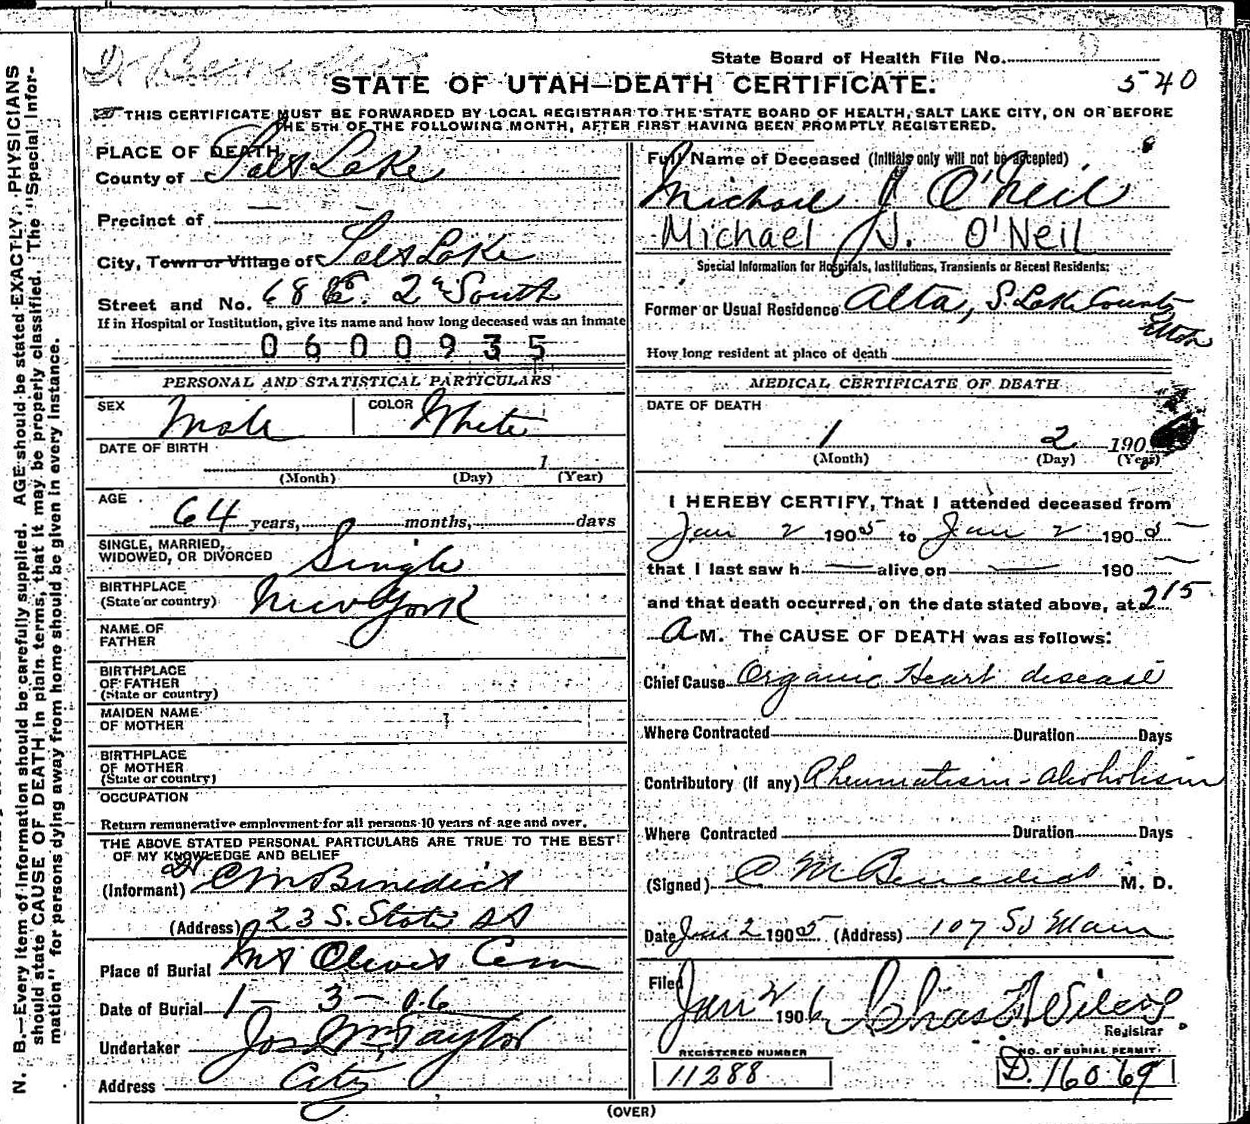 Dr Benedict
State Board of Health File No.
STATE OF UTAH—DEATH CERTIFICATE.
540
THIS CERTIFICATE MUST BE FORWARDED BY LOCAL REGISTRAR TO THE STATE BOARD OF HEALTH, SALT LAKE CITY, ON OR BEFORE
THE 5TH OF THE FOLLOWING MONTH, AFTER FIRST HAVING BEEN PROMPTLY REGISTERED.
PLACE OF DEATH
County of Salt Lake
Precinct of — —
City, Town or Village of Salt Lake
Street and No. 68 E. 2nd South
If in Hospital or Institution, give its name and how long deceased was an inmate
0600935
PERSONAL AND STATISTICAL PARTICULARS
SEX Male COLOR White
DATE OF BIRTH
1
(Month) (Day) (Year)
AGE 64 years, months, days
SINGLE, MARRIED,
WIDOWED, OR DIVORCED Single
BIRTHPLACE
(State or country) New York
NAME OF
FATHER
BIRTHPLACE
OF FATHER
(State or country)
MAIDEN NAME
OF MOTHER
BIRTHPLACE
OF MOTHER
(State or country)
OCCUPATION
Return remunerative employment for all persons 10 years of age and over.
THE ABOVE STATED PERSONAL PARTICULARS ARE TRUE TO THE BEST
OF MY KNOWLEDGE AND BELIEF
(Informant) Dr C M Benedict
(Address) 23 S. State St
Place of Burial Mt Olivet Cem
Date of Burial 1 — 3 — 06
Undertaker Jos Wm Taylor
Address City
Full Name of Deceased (Initials only will not be accepted)
Michael J O'Neil
Michael J. O'Neil
Special Information for Hospitals, Institutions, Transients or Recent Residents:
Former or Usual Residence Alta, S. Lake County
Utah
How long resident at place of death
MEDICAL CERTIFICATE OF DEATH
DATE OF DEATH
1 2 190
(Month) (Day) (Year)
I HEREBY CERTIFY, That I attended deceased from
Jan 2 1905 to Jan 2 1905
that I last saw h — alive on — 190 —
and that death occurred, on the date stated above, at 2 15
A M. The CAUSE OF DEATH was as follows:
Chief Cause Organic Heart disease
Where Contracted Duration Days
Contributory (if any) Rheumatism - alcoholism
Where Contracted Duration Days
(Signed) C M Benedict M. D.
Date Jan 2 1905 (Address) 107 So Main
Filed
Jan 2 1906 Chas
Registrar
REGISTERED NUMBER
11288
NO. OF BURIAL PERMIT
D. 16069
(OVER)
N. B.—Every item of information should be carefully supplied. AGE should be stated EXACTLY. PHYSICIANS
should state CAUSE OF DEATH in plain terms, that it may be properly classified. The "Special Infor-
mation" for persons dying away from home should be given in every instance.